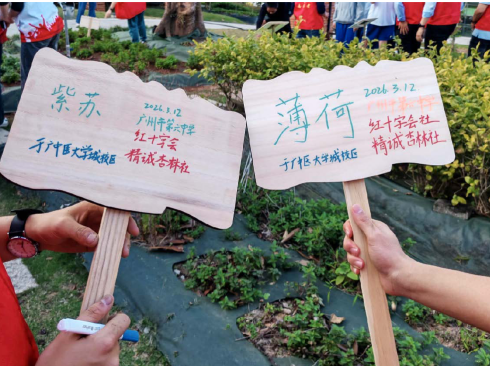 紫苏
2026.3.12
广州市第六中学
红十字会
精诚杏林社
于广中医大学城校区
薄荷
2026.3.12
广州市第六中学
红十字会社
精诚杏林社
于广中医大学城校区